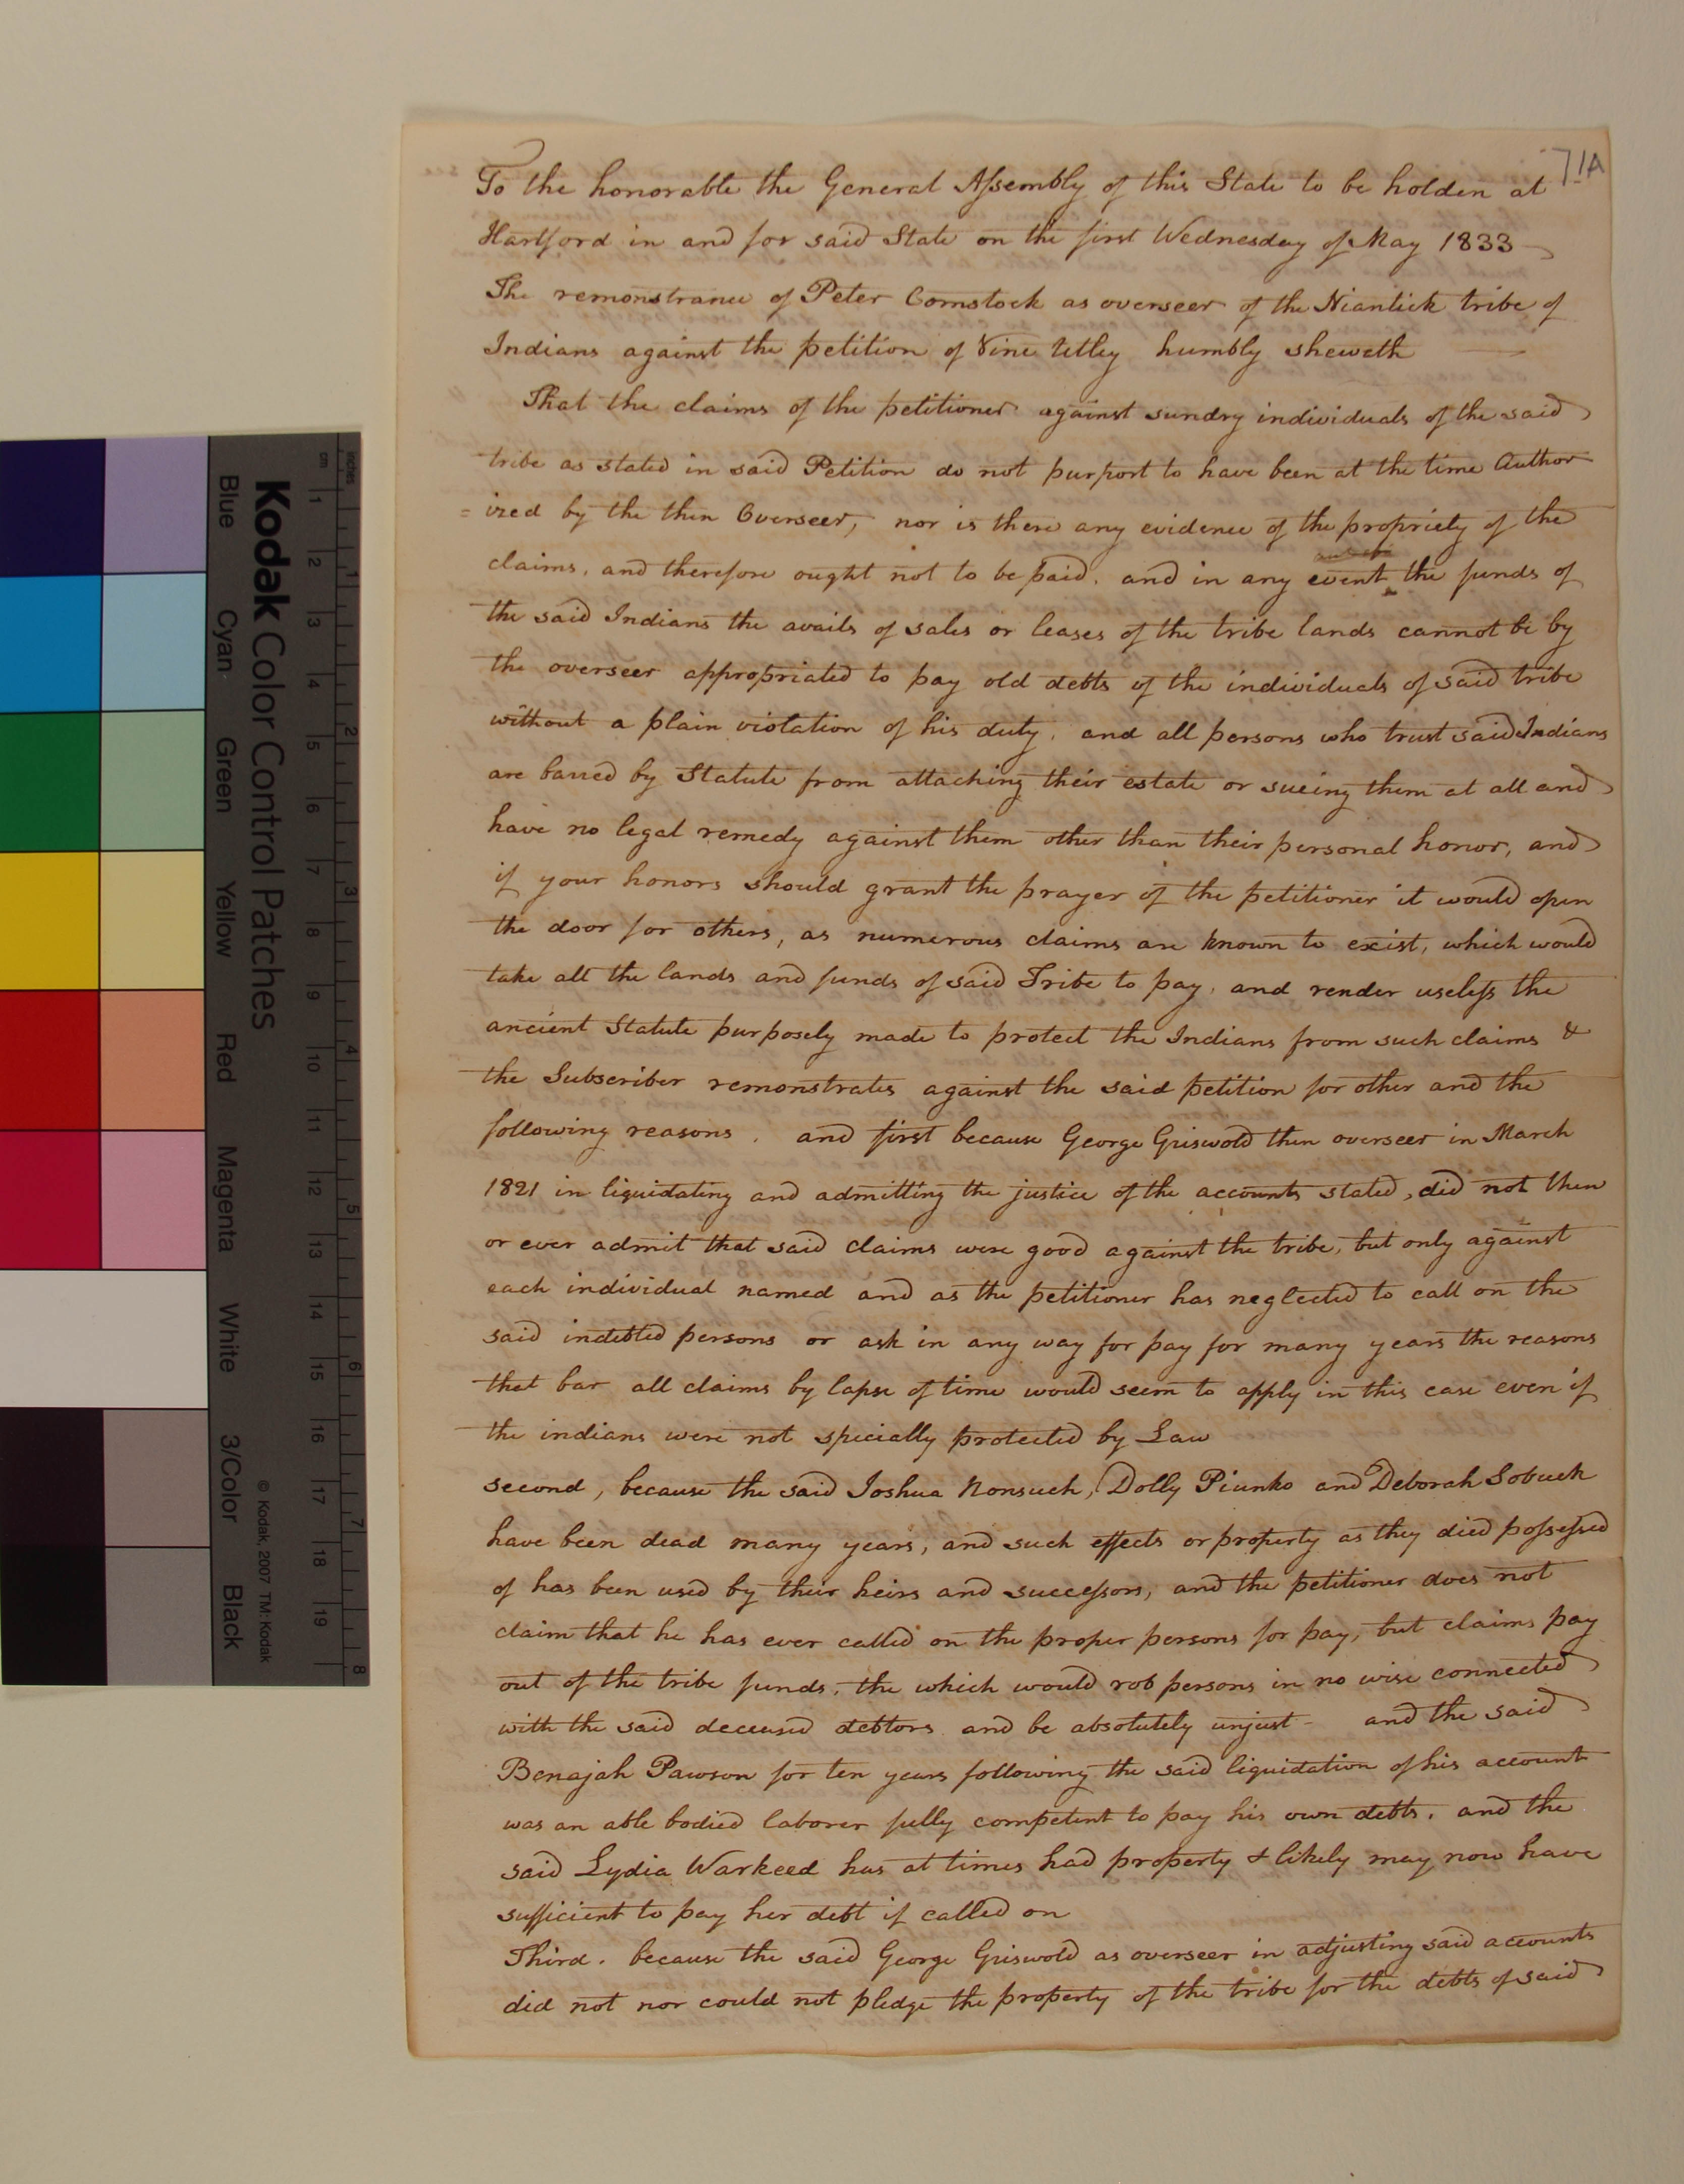 71A
To the honorable the General Assembly of this State to be holden at
Hartford in and for said State on the first Wednesday of May 1833
The remonstrance of Peter Comstock as overseer of the Niantick tribe of
Indians against the petition of Vine Utley humbly sheweth
That the claims of the petitioner against sundry individuals of the said
tribe as stated in said Petition do not purport to have been at the time Author
=ized by the then Overseer, nor is there any evidence of the propriety of the
claims, and therefore ought not to be paid. and in any event the funds of
the said Indians the avails of sales or leases of the tribe lands cannot be by
the overseer appropriated to pay old debts of the individuals of said tribe
without a plain violation of his duty. and all persons who trust said Indians
are barred by Statute from attaching their estate or sueing them at all and
have no legal remedy against them other than their personal honor, and
if your honors should grant the prayer of the petitioner it would open
the door for others, as numerous claims are known to exist, which would
take all the lands and funds of said Tribe to pay. and render useless the
ancient Statute purposely made to protect the Indians from such claims &
the Subscriber remonstrates against the said petition for other and the
following reasons. and first because George Griswold then overseer in March
1821 in liquidating and admitting the justice of the accounts stated, did not then
or ever admit that said claims were good against the tribe, but only against
each individual named and as the petitioner has neglected to call on the
said indebted persons or ask in any way for pay for many years the reasons
that bar all claims by lapse of time would seem to apply in this case even if
the indians were not specially protected by Law
second, because the said Joshua Nonsuch, Dolly Piunko and Deborah Sobuck
have been dead many years, and such effects or property as they died possessed
of has been used by their heirs and successors, and the petitioner does not
claim that he has ever called on the proper persons for pay, but claims pay
out of the tribe funds, the which would rob persons in no wise connected
with the said deceased debtors and be absolutely unjust - and the said
Benajah Pawson for ten years following the said liquidation of his account
was an able bodied laborer fully competent to pay his own debts. and the
said Lydia Warkeed has at times had property & likely may now have
sufficient to pay her debt if called on
Third. because the said George Griswold as overseer in adjusting said accounts
did not nor could not pledge the property of the tribe for the debts of said
inches
cm
1 2 3 4 5 6 7 8 9 10 11 12 13 14 15 16 17 18 19
1 2 3 4 5 6 7 8
Kodak Color Control Patches
© Kodak, 2007 TM: Kodak
Blue Cyan Green Yellow Red Magenta White 3/Color Black